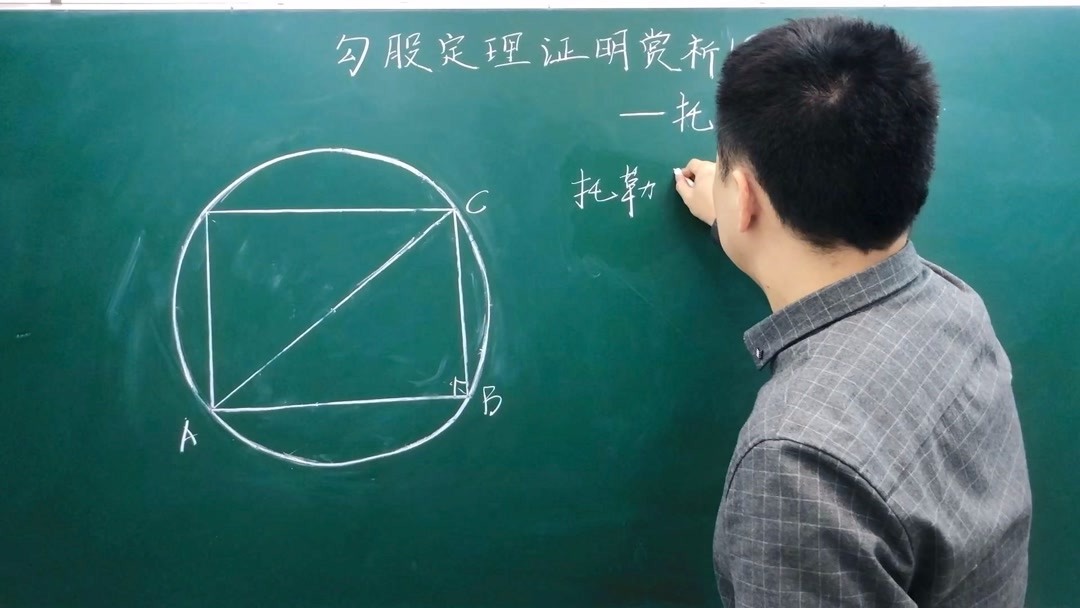 勾股定理证明赏析
—托
托勒
C
A
B